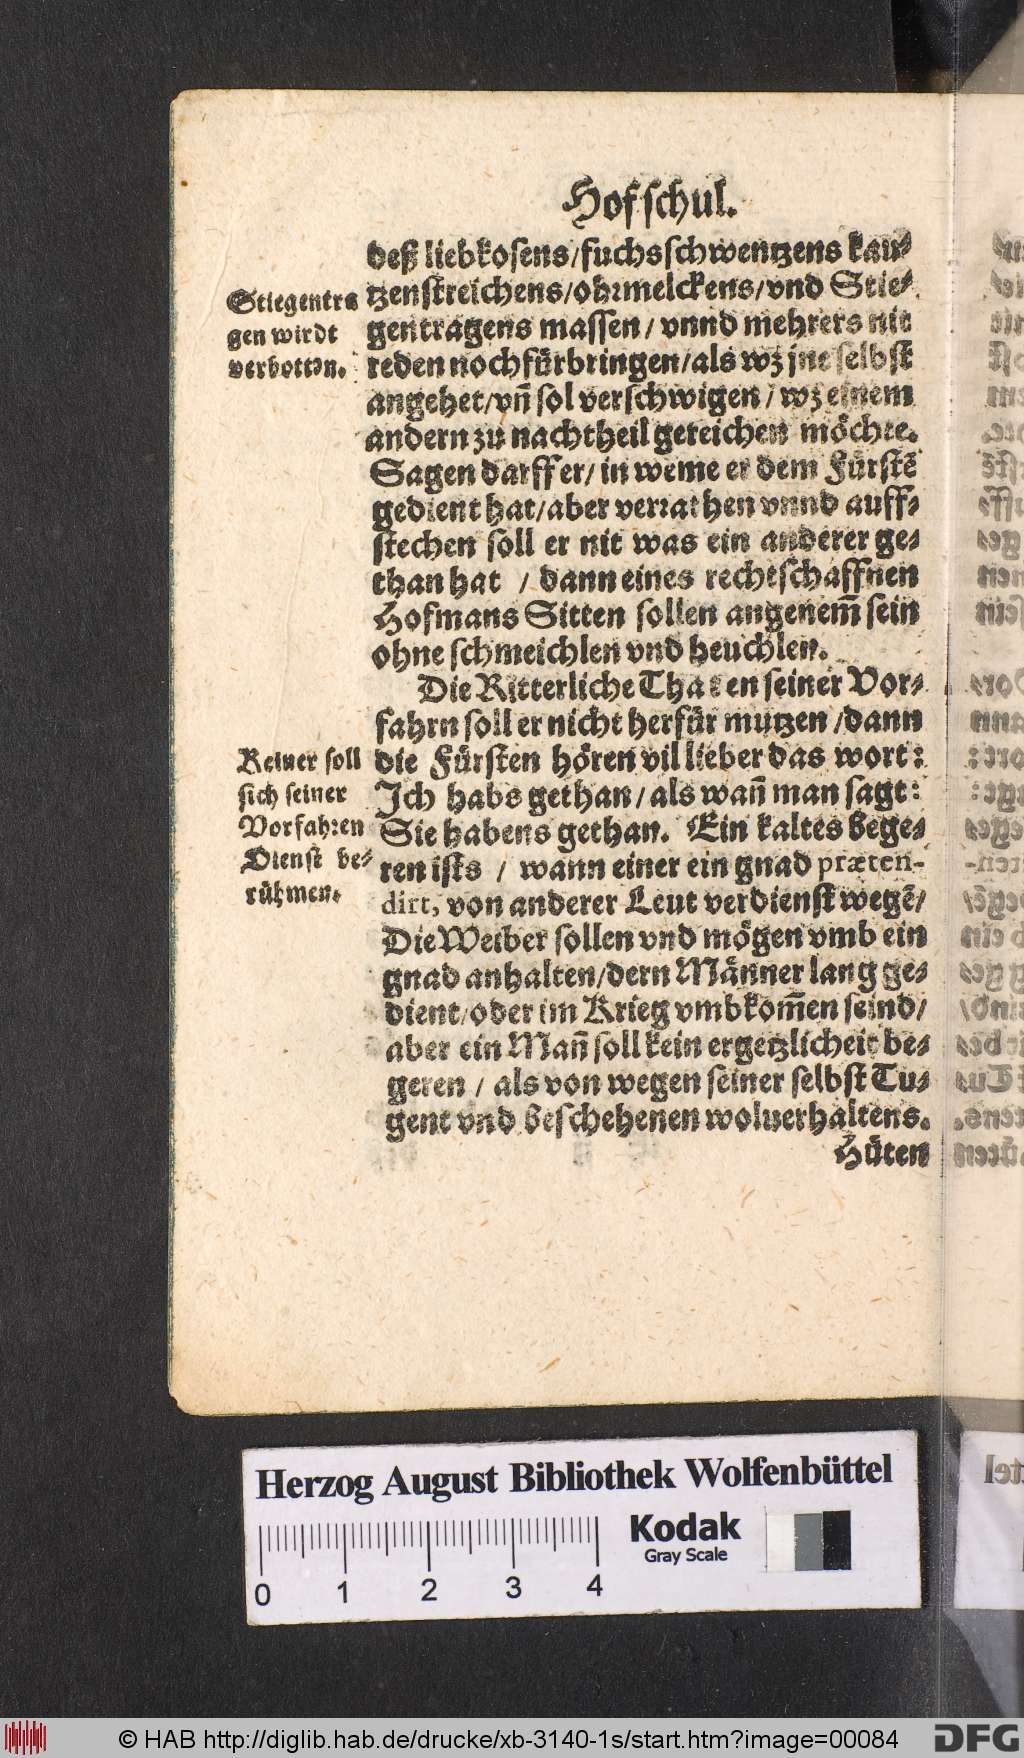 Hofschul.
deß liebkosens/fuchsschwentzens kau⸗
tzenstreichens/ohrmelckens/vnd Stie⸗
gentragens massen/ vnnd mehrers nit
reden noch fürbringen/als wz jne selbst
angehet/vñ sol verschwigen/ wz einem
andern zu nachtheil gereichen möchte.
Sagen darff er/ in weme er dem Fürstẽ
gedient hat/aber verrathen vnnd auff⸗
stechen soll er nit was ein anderer ge⸗
than hat / dann eines rechtschaffnen
Hofmans Sitten sollen angenem̃ sein
ohne schmeichlen vnd heuchlen.
Die Ritterliche Thaten seiner Vor⸗
fahrn soll er nicht herfür mutzen /dann
die Fürsten hören vil lieber das wort:
Ich habs gethan/ als wañ man sagt:
Sie habens gethan. Ein kaltes bege⸗
ren ists / wann einer ein gnad præten-
dirt, von anderer Leut verdienst wegẽ/
Die Weiber sollen vnd mögen vmb ein
gnad anhalten/dern Männer lang ge⸗
dient/oder im Krieg vmbkom̃en seind/
aber ein Mañ soll kein ergetzlicheit be⸗
geren / als von wegen seiner selbst Tu⸗
gent vnd beschehenen woluerhaltens.
Hüten
Stiegentra
gen wirdt
verbotten.
Keiner soll
sich seiner
Vorfahren
Dienst be⸗
rühmen.
Herzog August Bibliothek Wolfenbüttel
Kodak
Gray Scale
0 1 2 3 4
© HAB http://diglib.hab.de/drucke/xb-3140-1s/start.htm?image=00084
DFG